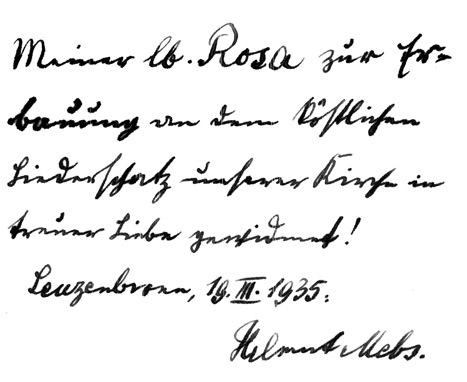 Meiner lb. Rosa zur Er-
bauung an dem köstlichen
Liederschatz unserer Kirche in
treuer Liebe gewidmet!
Leuzenbronn, 19. III. 1935.
Helmut Mebs.